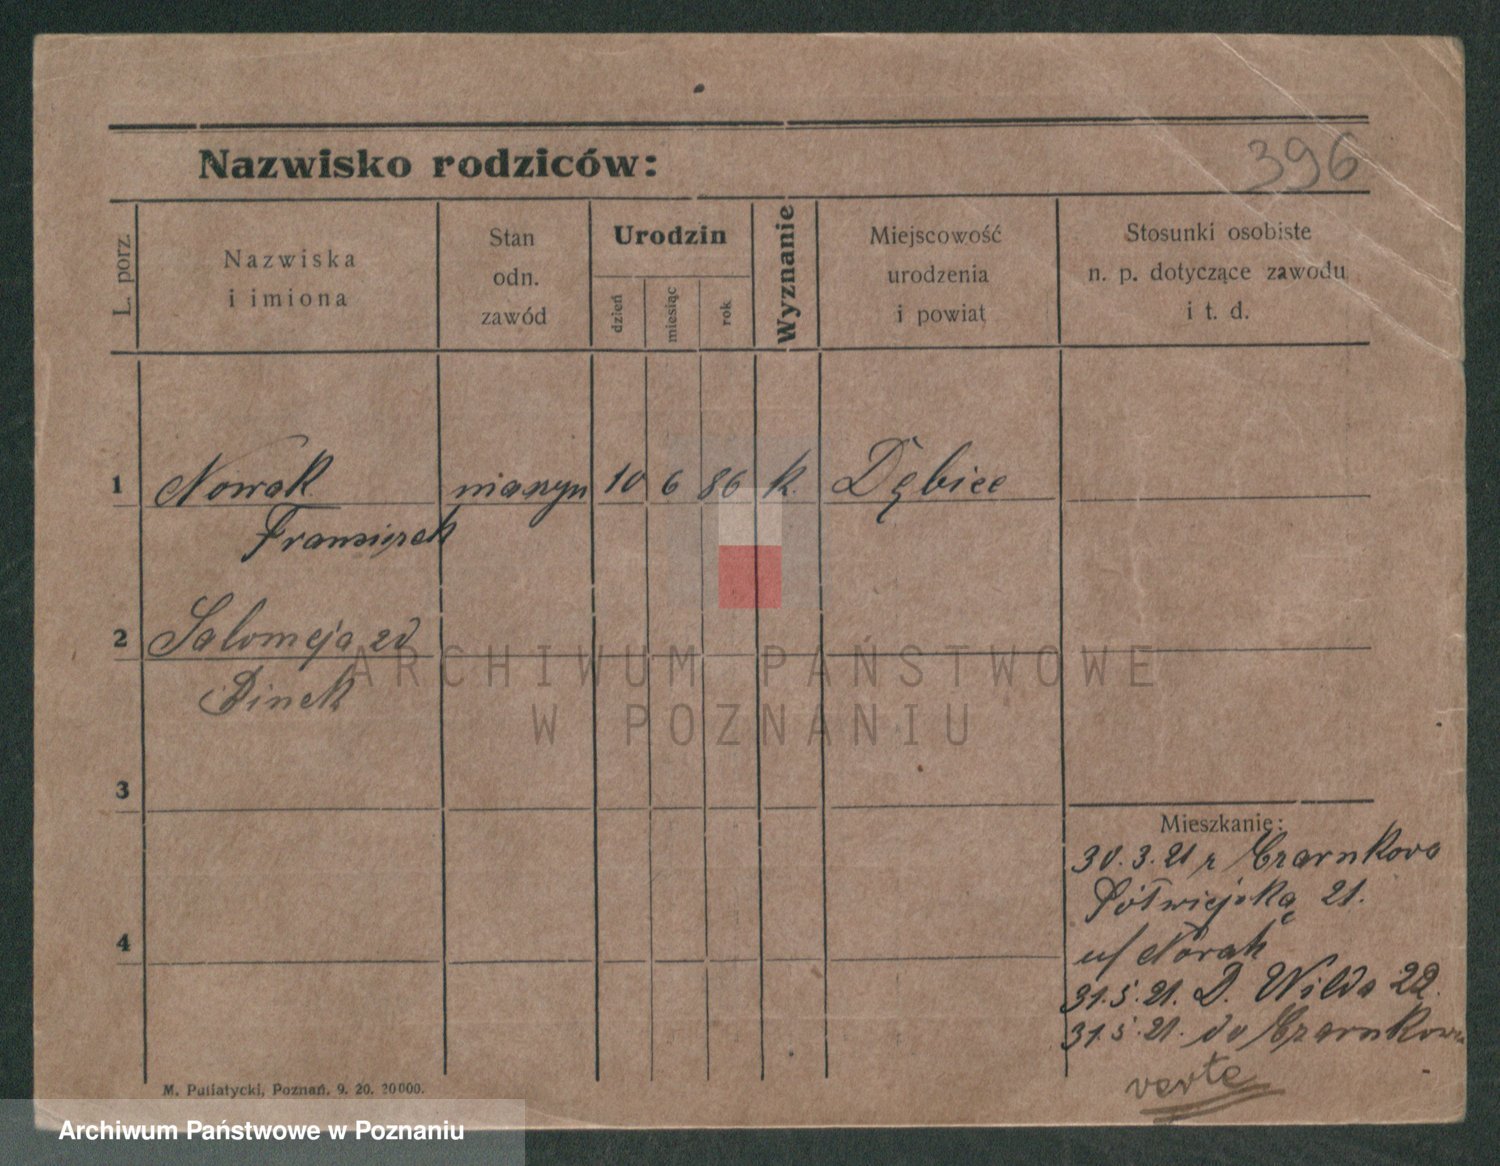 Nazwisko rodziców:
396
L. porz.
Nazwiska
i imiona
Stan
odn.
zawód
Urodzin
dzień
miesiąc
rok
Wyznanie
Miejscowość
urodzenia
i powiat
Stosunki osobiste
n. p. dotyczące zawodu
i t. d.
1
Nowak
10 6 86 k. Dębiec
Franciszek
2
Salomeja zd
ARCHIWUM PAŃSTWOWE
W POZNANIU
3
4
Mieszkanie:
30.3.21 z Czarnkowa
Półwiejską 21.
u/ Nowak
31.5.21. D. Wilda 22.
31.5.21. do Czarnkowa
verte
M. Putiatycki, Poznań. 9. 20. 20000.
Archiwum Państwowe w Poznaniu